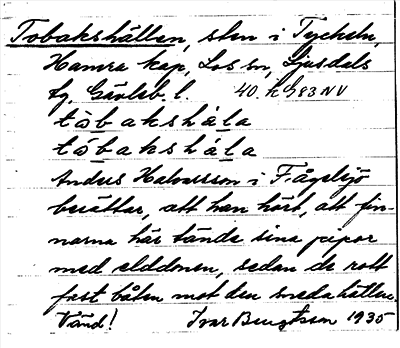 Tobakshällen, sten i Tyckeln,
Hamra kap, Los sn, Ljusdals
tg, Gävleb. l. 40. h G83NV
tòbakshä̀la
tóbakshä̀la
Anders Halvarsson i Fågelsjö
berättar, att han hört, att fin-
narna här tände sina pipor
med elddonen, sedan de rott
fast båten mot den sneda hällen.
Vänd! Ivar Bengtsson 1935